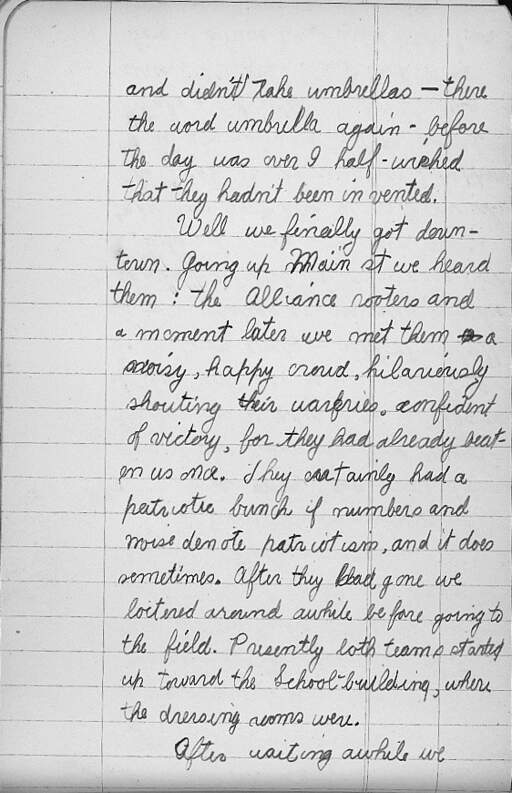 and didn't take umbrellas — there
the word umbrella again - before
the day was over I half-wished
that they hadn't been invented.
Well we finally got down-
town. Going up Main st we heard
them: the Alliance rooters and
a moment later we met them a
noisy, happy crowd, hilariously
shouting their warcries, confident
of victory, for they had already beat-
en us once. They certainly had a
patriotic bunch if numbers and
noise denote patriotism, and it does
sometimes. After they had gone we
loitered around awhile before going to
the field. Presently both teams started
up toward the School-building, where
the dressing rooms were.
After waiting awhile we